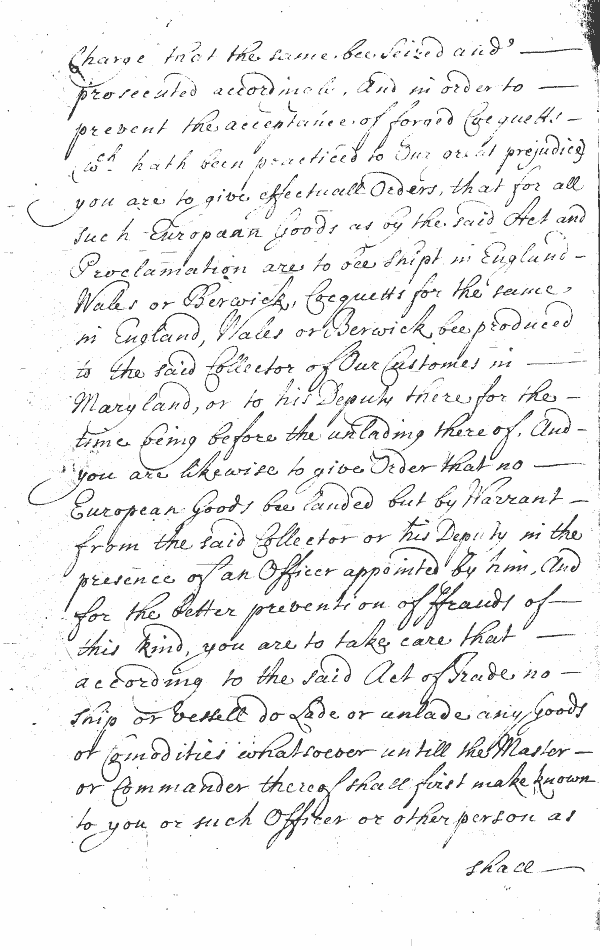 Charge that the same bee Seized and
prosecuted accordingly. And in order to
prevent the acceptance of forged Cocquetts
(wch hath been practiced to Our great prejudice)
you are to give effectuall Orders, that for all
such European Goods as by the said Act and
Proclamation are to bee shipt in England
Wales or Berwick, Cocquetts for the same
in England, Wales or Berwick bee produced
to the said Collector of Our Customes in
Maryland, or to his Deputy there for the
time being before the unlading thereof. And
you are likewise to give Order that no
European Goods bee landed but by Warrant
from the said Collector or his Deputy in the
presence of an Officer appointed by him, And
for the better prevention of ffrauds of
this kind, you are to take care that
according to the said Act of Trade no
Ship or Vessell do Lade or unlade any Goods
or Comodities whatsoever untill the Master
or Commander thereof shall first make known
to you or such Officer or other person as
shall